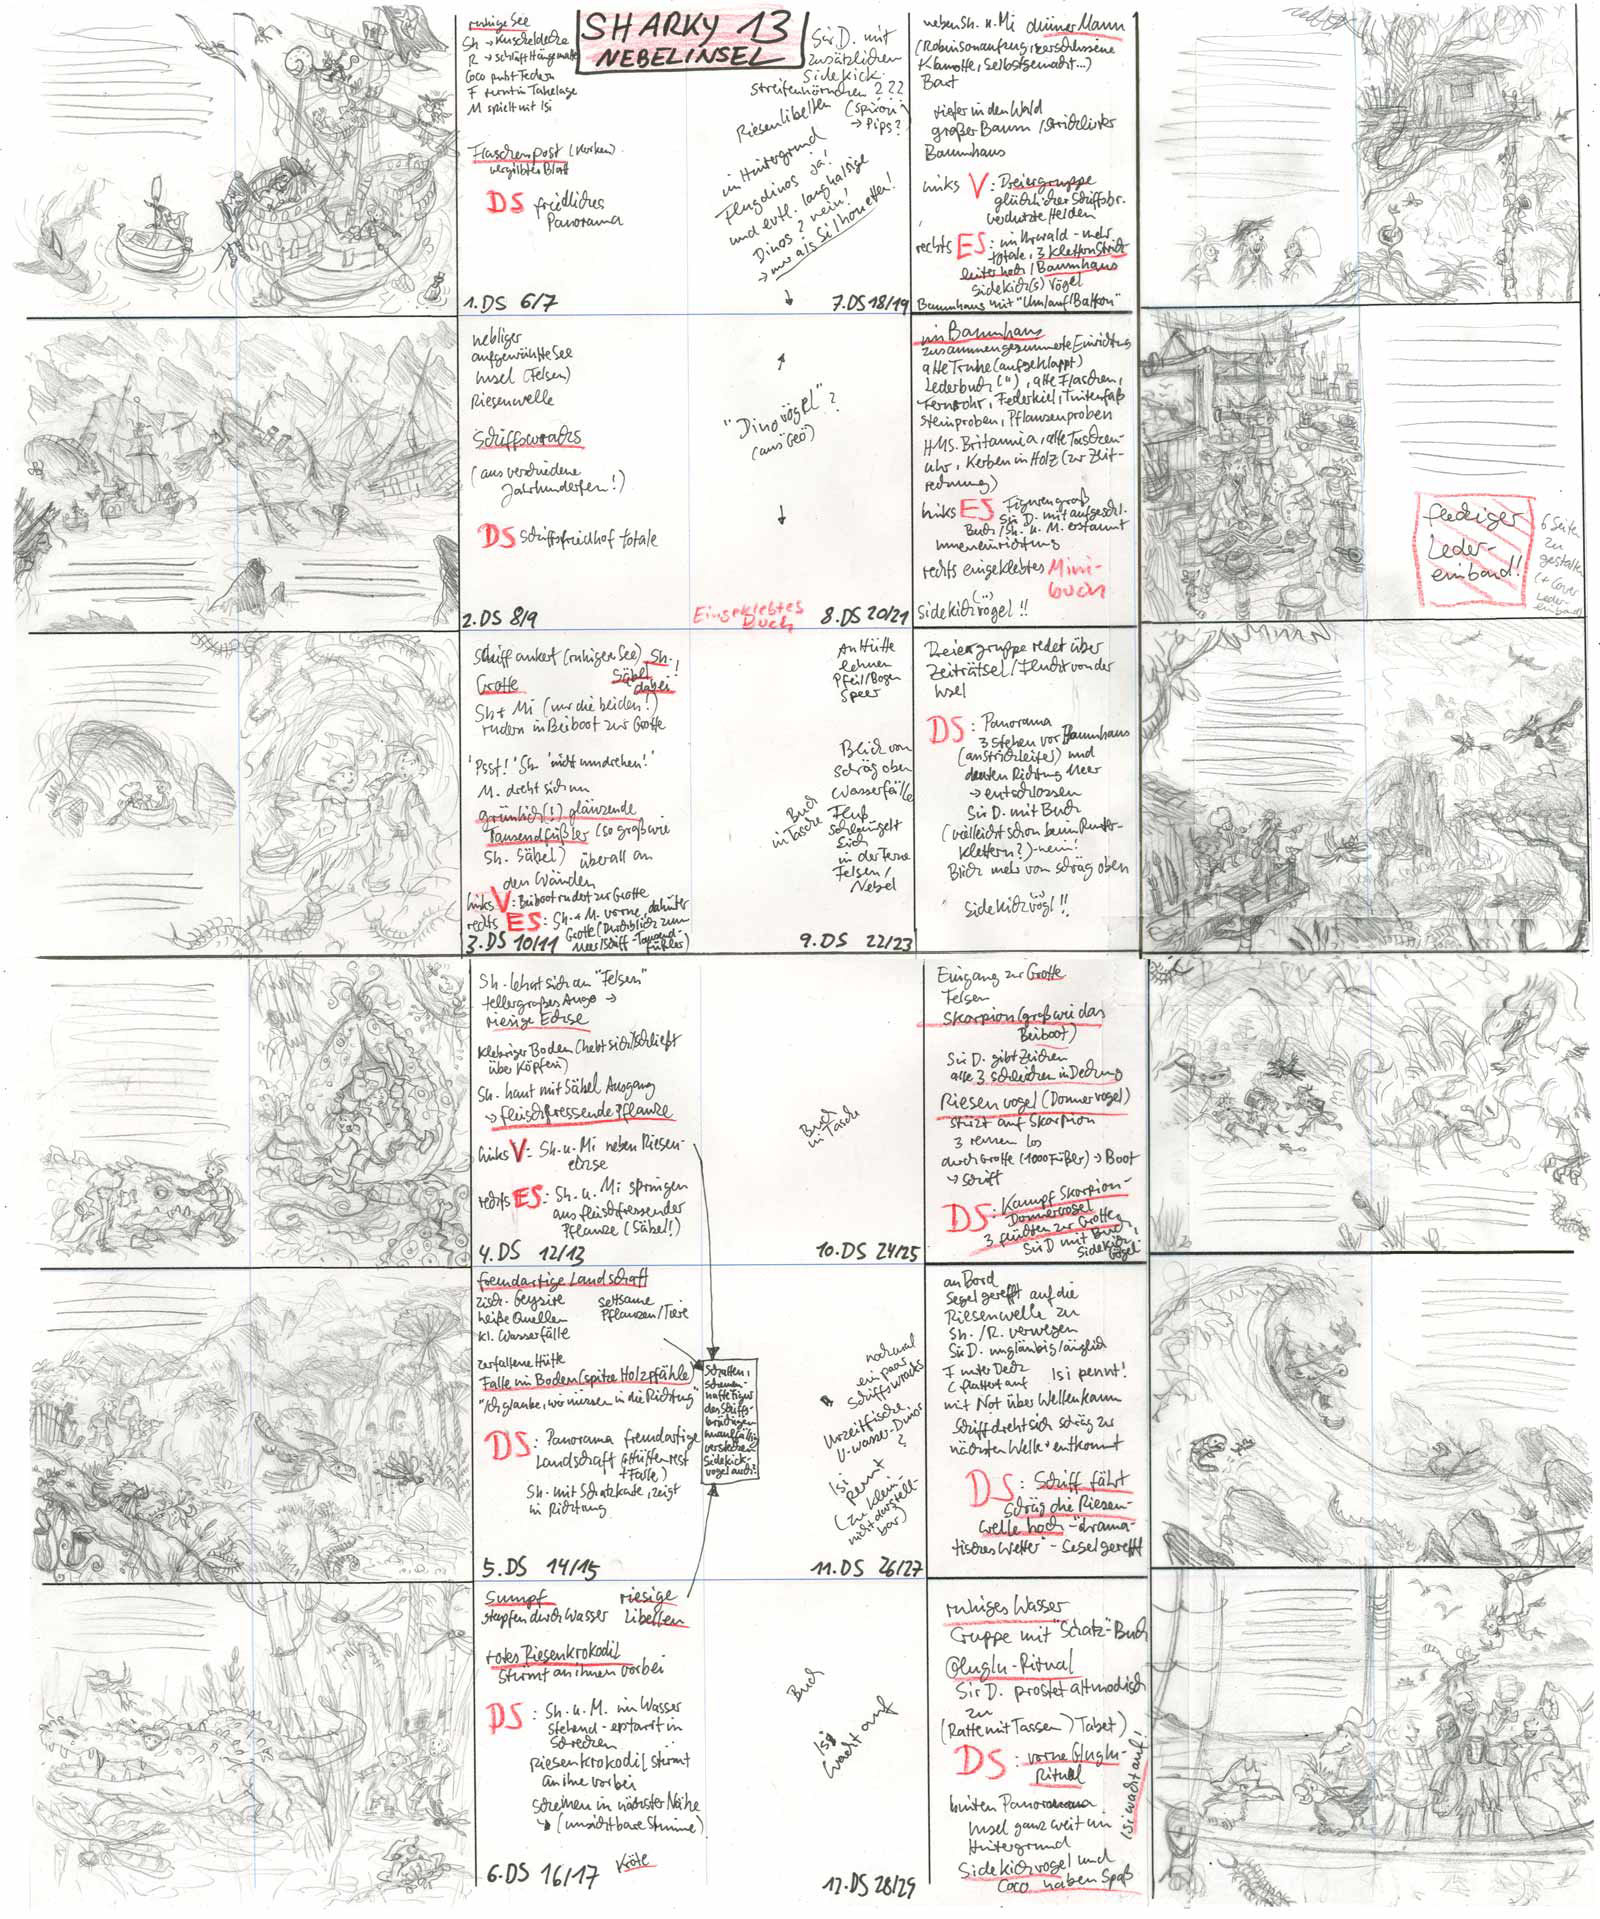 SHARKY 13
NEBELINSEL
ruhige See
Sh → Kuscheldecke
R → schläft Hängematte
Coco putzt Federn
F turnt in Takelage
M spielt mit Isi
Flaschenpost (Korken)
vergilbtes Blatt
DS friedliches
Panorama
1. DS 6/7
Sir D. mit
zusätzlichen
Sidekick
Streifenhörnchen ???
→ Pips?
Riesenlibellen
im Hintergrund
Flugdinos ja!
und evtl. langhalsige
Dinos? nein!
→ nur als Silhouetten!
7. DS 18/19
neben Sh. u. Mi dünner Mann
(Robinsonaufzug, zerschlissene
Klamotte, selbstgemacht...)
Bart
tiefer in den Wald
großer Baum / Strickleiter
Baumhaus
links V: Dreiergruppe
glücklicher Schiffsbr.
verdutzte Helden
rechts ES: im Urwald - mehr
totale, 3 klettern Strick
leiter hoch / Baumhaus
Sidekick(s) Vögel
Baumhaus mit "Umlauf/Balkon"
nebliger
aufgewühlte See
Insel (Felsen)
Riesenwelle
Schiffswracks
(aus verschiedene
Jahrhunderten!)
DS Schiffsfriedhof totale
2. DS 8/9
"Dinovögel"?
(aus Geo)
Eingeklebtes
Buch
8. DS 20/21
im Baumhaus
zusammengezimmerte Einrichtung
alte Truhe (aufgeklappt)
Lederbuch ("), alte Flaschen,
Fernrohr, Federkiel, Tintenfaß
Steinproben, Pflanzenproben
HMS. Britannia, alte Taschen-
uhr, Kerben in Holz (zur Zeit-
rechnung)
links ES Figuren groß
Sir D. mit aufgeschl.
Buch / Sh. u. M. erstaunt
Inneneinrichtung
rechts eingeklebtes Mini-
buch
Sidekickvögel !!
fleckiger
Leder-
einband!
6 Seiten
zu
gestalten
(+ Cover
Leder-
einband)
Schiff ankert (ruhigen See) Sh.
Säbel
dabei!
Grotte
Sh + Mi (nur die beiden!)
rudern in Beiboot zur Grotte
'Psst!' Sh. 'nicht umdrehen!'
M. dreht sich um
grünlich(!) glänzende
Tausendfüßler (so groß wie
Sh. Säbel) überall an
den Wänden
links V: Beiboot rudert zur Grotte
rechts ES: Sh. + M. vorne, dahinter
Grotte (Durchblick zum
Meer/Schiff - Tausend-
füßler)
3. DS 10/11
An Hütte
lehnen
Pfeil/Bogen
Speer
Blick von
schräg oben
Wasserfälle
Fluß
schlängelt
sich
in der Ferne
Felsen/
Nebel
Buch
in Tasche
9. DS 22/23
Dreiergruppe redet über
Zeiträtsel / Flucht von der
Insel
DS: Panorama
3 stehen vor Baumhaus
(an Strickleiter) und
deuten Richtung Meer
→ entschlossen
Sir D. mit Buch
(vielleicht schon beim Runter-
klettern?) - nein!
Blick mehr von schräg oben
Sidekickvögl !!
Sh. lehnt sich an "Felsen"
tellergroßes Auge →
riesige Echse
klebriger Boden (hebt sich/schließt
über Köpfen)
Sh. haut mit Säbel Ausgang
→ fleischfressende Pflanze
links V: Sh. u. Mi neben Riesen-
echse
rechts ES: Sh. u. Mi springen
aus fleischfressender
Pflanze (Säbel!)
4. DS 12/13
Buch
in Tasche
10. DS 24/25
Eingang zur Grotte
Felsen
Skorpion (groß wie das
Beiboot)
Sir D. gibt Zeichen
alle 3 schleichen in Deckung
Riesenvogel (Donnervogel)
stürzt auf Skorpion
3 rennen los
durch Grotte (1000Füßer) → Boot
→ Schiff
DS: Kampf Skorpion-
Donnervogel
3 flüchten zur Grotte
Sir D mit Buch,
Sidekick
Vögel
fremdartige Landschaft
zisch. Geysire
heiße Quellen
kl. Wasserfälle
seltsame
Pflanzen/Tiere
zerfallene Hütte
Falle im Boden (spitze Holzpfähle)
"Ich glaube, wir müssen in die Richtung"
DS: Panorama fremdartige
Landschaft (Hüttenrest
+ Falle)
Sh. mit Schatzkarte, zeigt
in Richtung
5. DS 14/15
Schatten,
schemen-
hafte Figur
des Schiff-
brüchigen
unauffällig
verstecken
Sidekick-
vogel auch!
nochmal
ein paar
Schiffswracks
Urzeitfische,
U-Wasser-Dinos
?
Isi
pennt
(zu klein-
nicht darstell-
bar)
11. DS 26/27
an Bord
Segel gerefft auf die
Riesenwelle zu
Sh. / R. verwegen
Sir D. ungläubig/ängstlich
F unter Deck
C flattert auf Isi pennt!
mit Not über Wellenkamm
Schiff dreht sich schräg zur
nächsten Welle + entkommt
DS: Schiff fährt
schräg die Riesen-
welle hoch - "drama-
tisches Wetter" - Segel gerefft
Sumpf
stapfen durch Wasser
riesige
Libellen
rotes Riesenkrokodil
stürmt an ihnen vorbei
DS: Sh. u. M. im Wasser
stehend - erstarrt in
Schrecken
Riesenkrokodil stürmt
an ihne vorbei
Schemen in nächster Nähe
→ (unsichtbare Stimme)
Kröte
6. DS 16/17
Buch
Isi
wacht auf
12. DS 28/29
ruhiges Wasser
Gruppe mit "Schatz"-Buch
Gluglu-Ritual
Sir D. prostet altmodisch
zu
(Ratte mit Tassen) Tablet)
DS: vorne Gluglu-
Ritual
hinten Panorama
Insel ganz weit im
Hintergrund
Sidekickvogel und
Coco haben Spaß
Isi wacht auf!